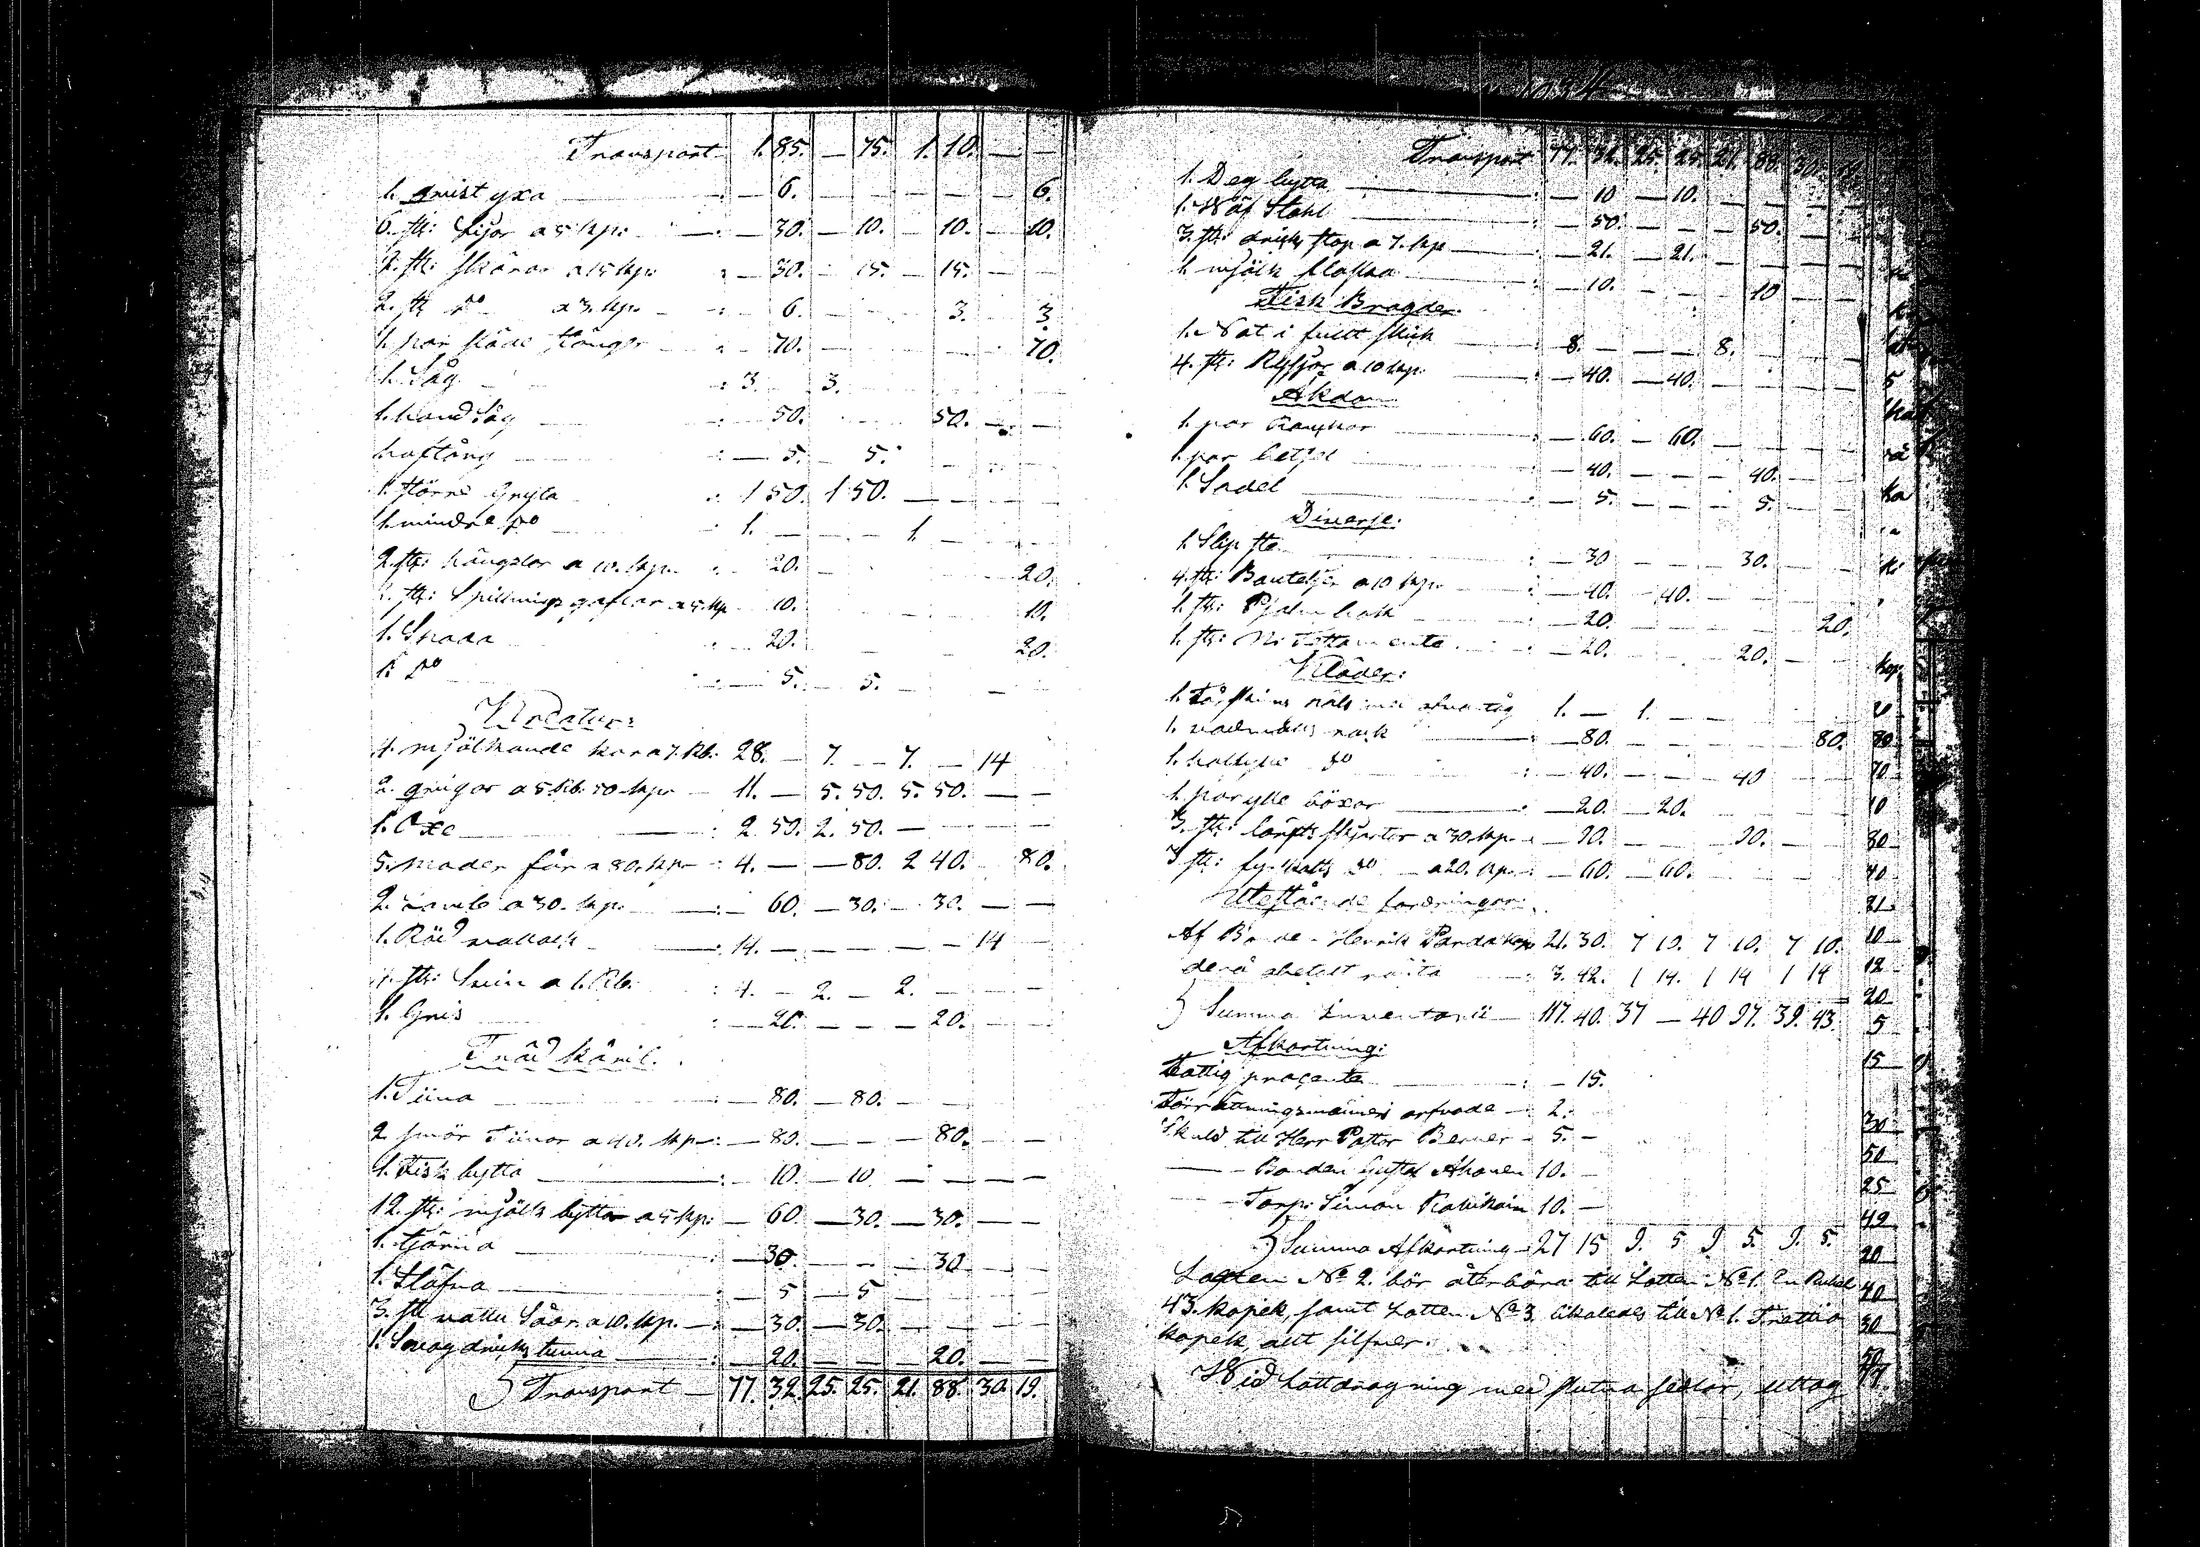 Transport 1. 85. — 75. 1. 10. — —
1. qvist yxa — 6. — — — — — 6.
6. st: Lijor a 5 kp: — 30. — 10. — 10. — 10.
2. st: skäror a 15 kp: — 30. — 15. — 15. — —
2. st Do a 3. kp. — 6. 3. 3.
1. par släde stänger 70. 70.
1. Såg 3. 3.
1. hand Såg 50. 50. — —
hoftång — 5. — 5.
1. större Gryta 1 50. 1 50. — — — —
1. mindre Do 1. — — — 1. —
2. st: hängslor a 10. kp. 20. 20.
2. st: Spillnings gaflar a 5 kp 10. 10.
1. Spada 20. 20.
1. Do — 5. — 5. — —
Kreatur:
4. mjölkande kor a 7. Rb. 28. — 7. — 7. — 14
2. qvigor a 5 Rb. 50 kpr 11. — 5. 50. 5. 50. — —
1. Oxe 2. 50. 2. 50. — — — —
5. moder får a 80. kpr 4. — — 80. 2 40. 80.
2. lamb a 30. kp. — 60. — 30. — 30. — —
1. Röd vallack 14. — — — — — 14 —
4. st: Svin a 1. Rb. 4. — 2. — 2. — — —
1. Gris — 20. — — — 20. — —
Träd käril.
1. Tiina — 80. — 80. — —
2. smör Tiinor a 40. kp — 80. — — — 80. — —
1. Fisk bytta — 10. — 10 — — — —
12. st: mjölk byttor a 5 kp: — 60. — 30. — 30. — —
1. tjärna — 30. — — — 30 — —
1. Stäfva — 5 — 5 — — — —
3. st vattu Såar a 10. kp. — 30. — 30. — — — —
1. Svagdricks tunna — 20. — — — 20. — —
Transport — 77. 32. 25. 25. 21. 88. 30. 19.
Transport 77. 32. 25. 25. 21. 88. 30. 19.
1. Deg bytta — 10 — 10. — — — —
1. Stohl — 50. — — — 50. — —
3. st: dricks stop a 7. kp — 21. — 21. — — — —
1. mjölk — 10. — — — 10 — —
Fisk Bragder.
1. Not i fullt skick 8. — — — 8. — — —
4. st: Ryssjor a 10 kp. — 40. — 40. — — — —
Åkdon
1. par — 60. — 60. —
1. par betzel — 40. — — — 40. — —
1. Sadel — 5. — — — 5. — —
Diverse.
1. Slip sten — 30 — — — 30. — —
4. st: Bouteljer a 10 kp. — 40. — 40. — — — —
1. st: Psalm bok — 20. — — — — — 20.
1. st: N: Testamente — 20. — — — 20. — —
Kläder:
1. 1. — 1. — —
1. vadmals rock — 80. — — — — — 80.
1. halfylle Do — 40. — — — 40
1. par ylle böxor — 20. — 20.
3. st: lärfts skjortor a 30. kp — 90. — — — 90.
3 st: Do a 20. kp. — 60. — 60.
Utestående fordringar:
Af Bonde Henrik 21. 30. 7 10. 7 10. 7 10.
derå obetalt ränta 3. 42. 1 14. 1 14 1 14
Summa Inventarii — 117. 40. 37 — 40 97. 39. 43.
Afkortning:
Fattig procenta — 15.
Förrättningsmännens arfvode — 2. —
Skuld till Herr Pastor Berner — 5. —
— Bonden Gustaf Ahonen 10. —
— Torp: Simon 10. —
Summa Afkortning — 27 15 9. 5 9 5. 9. 5.
Lotten No 2. bör återbära till Lotten No 1. En Rubel
43. kopek, samt Lotten No 3. likaledes till No 1. Trettio
kopek, allt silfver.
Wid Lottdragning med slutna sedlar, uttog